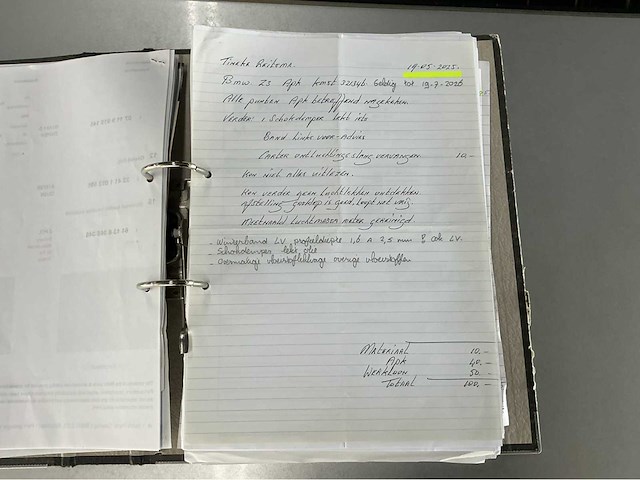 Tineke Reitsma. 19-05-2025.
Bmw Z3 Apk kmst 321346 Geldig tot 19-7-2026
Alle punten Apk betreffend nagekeken.
Verder: 1 Schokdemper lekt iets
Band Links voor - advies
Carter ontluchtingsslang vervangen 10,-
Kon niet alles uitlezen.
Kon verder geen luchtlekken ontdekken.
afstelling is goed, loopt niet vuig.
Luchtmassa meter gereinigd.
- Winterband LV profieldiepte 1,6 A 2,5 mm LV.
- Schokdemper lekt olie
- overige vloeistoffen
Materiaal 10,-
Apk 40,-
Werkloon 50,-
Totaal 100,-